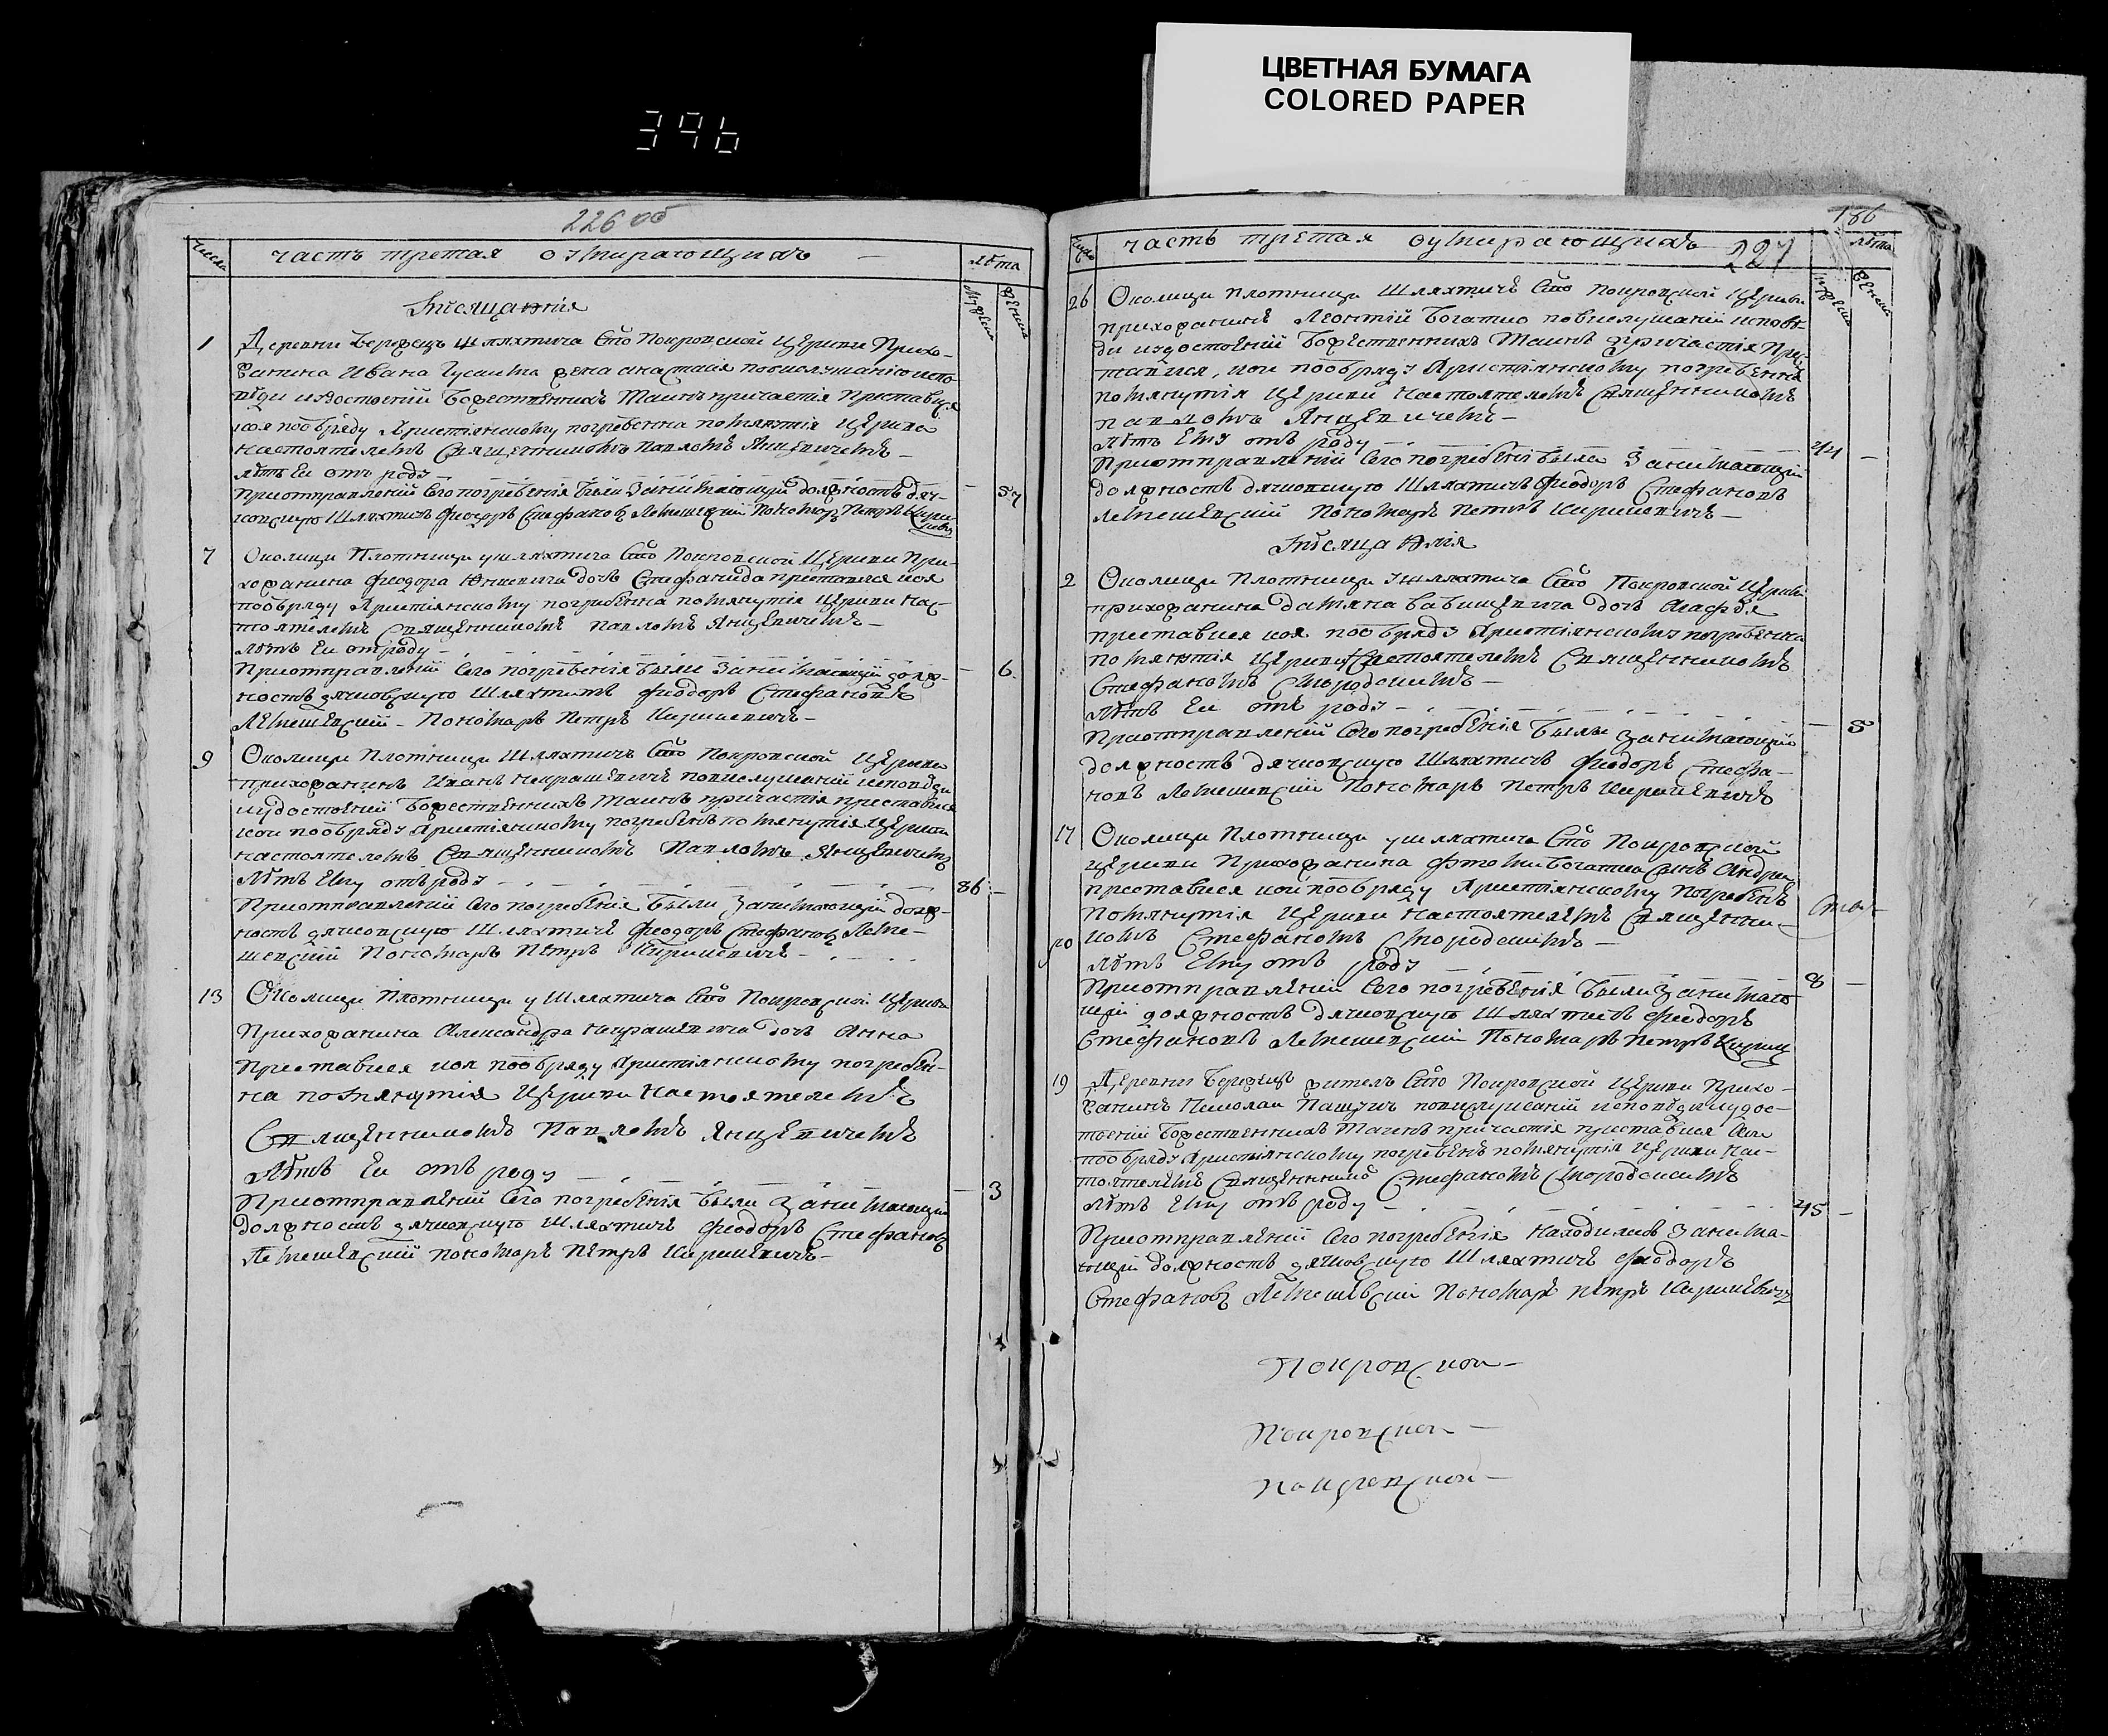 ЦВЕТНАЯ БУМАГА
COLORED PAPER
396
226 об
Числа
часть третая о умирающихъ —
лѣта
Мужеска
Женска
Мѣсяца
1
Деревни Бережцъ шляхтича Сто Покровской Церкви Прихо-
жанина Ивана жена Анастасія повислушанію испо-
вѣди и удостоеніи Божественнихъ Таинъ причастія Преставися
коя пообряду Христіянскому погребенна Церкви
настоятелемъ Священникомъ Павломъ Янцевичемъ —
лѣтъ Еи отъ роду — 57
Приотправленіи Сего погребенія были Занимающій должность дяч-
ковскую Шляхтичъ Феодоръ Стефановъ Лемешевскій Пономарь Петръ
7
Околици Плотници у шляхтича Сто Покровской Церкви При-
хожанина Феодора дочь Стефанида преставися коя
пообряду Христіянскому погребенна Церкви Нас-
тоятелемъ Священникомъ Павломъ Янцевичемъ —
лѣтъ Еи отроду — 6
Приотправленіи Сего погребенія были Занимающій долж-
ность дячковскую Шляхтичъ Феодоръ Стефановъ
Лемешевскій — Пономарь Петръ Кирикевичъ —
9
Околици Плотници Шляхтичъ Сто Покровской Церкви
прихожанинъ Иванъ Некрашевичъ повислушаніи исповѣди
иудостоеніи Божественнихъ Таинъ причастія преставися
кои пообряду Христіянскому погребенъ Церкви
настоятелемъ Священникомъ Павломъ Янцевичемъ
Лѣтъ Ему отъ роду — 86 —
Приотправленіи Сего погребенія Были Занимающій долж-
ность дячковскую Шляхтичъ Феодоръ Стефановъ Леме-
шевскій Пономарь Петръ Кирикевичъ —
13
Околици Плотници у Шляхтича Сто Покровской Церкви
Прихожанина Александра Некрашевича дочь Анна
Преставися коя пообряду Христіянскому погребен-
на Церкви Настоятелемъ
Священникомъ Павломъ Янцевичемъ
Лѣтъ Еи отъ роду — 3
Приотправленіи Сего погребенія были Занимающій
Должность дячковскую Шляхтичъ Феодоръ Стефановъ
Лемешевскій пономарь Петръ Кирикевичъ —
186
часть третая оумирающихъ
227
лѣта
Женска
26
Околици Плотници Шляхтичъ Сто Покровской Церкви
прихожанинъ Леонтій Богатко повислушаніи исповѣ-
ди иудостоеніи Божественнихъ Таинъ причастія Прес-
тавися, кои пообряду Христіянскому погребенъ
Церкви Настоятелемъ Священникомъ
Павломъ Янцевичемъ —
Лѣтъ Ему отъ роду — 44 —
Приотправленіи Сего погребенія Были Занимающій
должность дячковскую Шляхтичъ Феодоръ Стефановъ
Лемешевскій Пономарь Петръ Кирикевичъ —
Мѣсяца Юлія
2
Околици Плотници у шляхтича Сто Покровской Церкви
прихожанина Дамяна дочь Агафья
преставися коя пообряду Христіянскому погребенна
Церкви Настоятелемъ Священникомъ
Стефаномъ
Лѣтъ Еи отъ роду — 5
Приотправленіи Сего погребенія Были занимающій
должность дячковскую Шляхтичъ Феодоръ Стефа-
новъ Лемешевскій Пономарь Петръ Кирикевичъ
17
Околици Плотници у шляхтича Сто Покровской
Церкви Прихожанина Богатка синъ Андрей
преставися кои пообряду Христіянскому Погребенъ
Церкви Настоятелемъ Священни-
комъ Стефаномъ
Лѣтъ Ему отъ роду — 8 —
Приотправленіи Сего погребенія Были Занимаю-
щій должность дячковскую Шляхтичъ Феодоръ
Стефановъ Лемешевскій Пономарь Петръ
19
Деревни Бережцъ житель Сто Покровской Церкви Прихо-
жанинъ Николай повислушаніи исповѣди иудос-
тоеніи Божественнихъ Таинъ причастія преставися кои
пообряду Христіянскому погребенъ Церкви Нас-
тоятелемъ Священникомъ Стефаномъ
Лѣтъ Ему отъ роду — 45 —
Приотправленіи Сего погребенія Находились Занима-
ющій должность дячковскую Шляхтичъ Феодоръ
Стефановъ Лемешевскій Пономарь Петръ Кирикевичъ
Покровской —
Покровской —
Покровской —